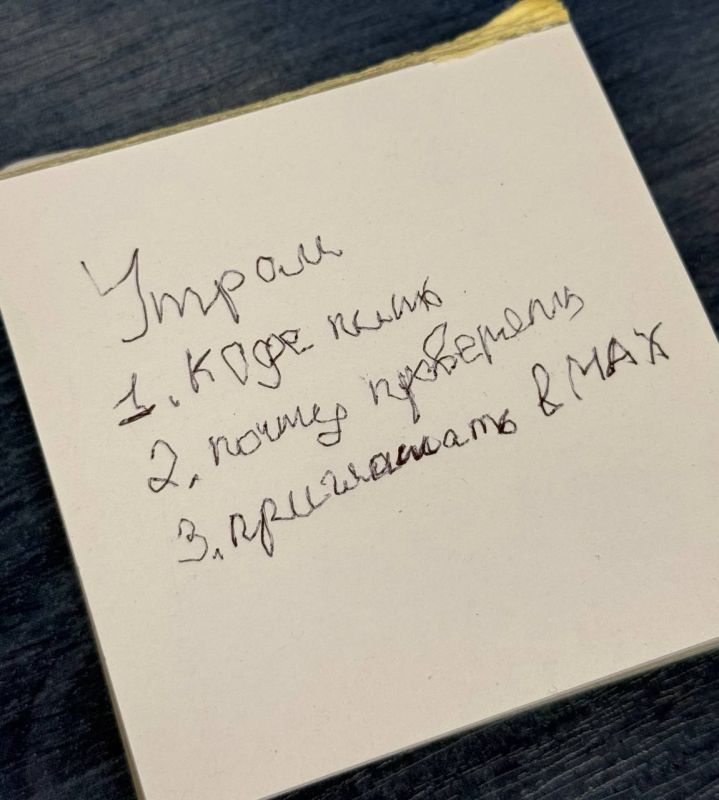 Утром
1. кофе пить
2. почту проверять
3. приглашать в MAX